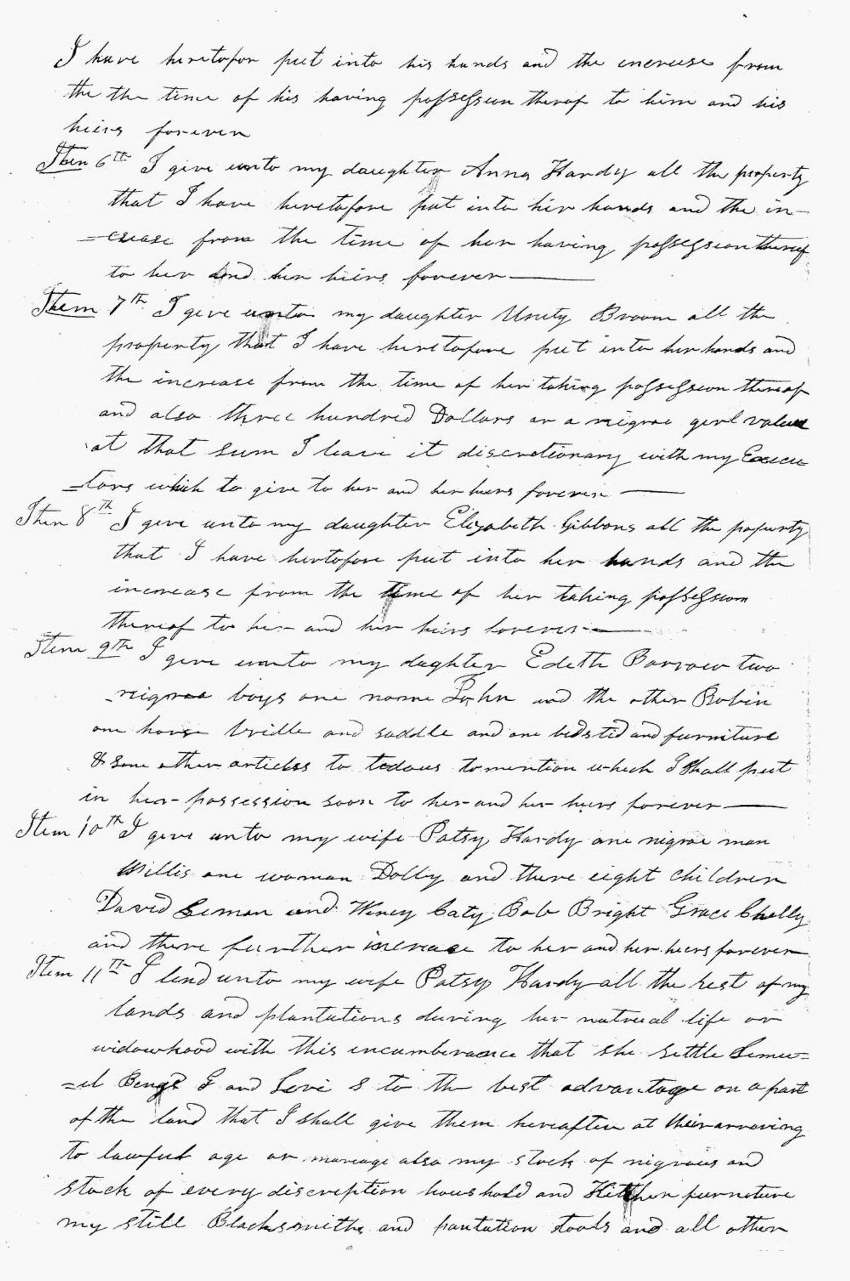 I have heretofor put into his hands and the increase from
the the time of his having possession therof to him and his
heirs forever
Item 6th I give unto my daughter Anna Hardy all the property
that I have heretofore put into her hands and the in-
=crease from the time of her having possession thereof
to her and her heirs forever
Item 7th I give unto my daughter Unity Broom all the
property that I have heretofore put into her hands and
the increase from the time of her taking possession thereof
and also three hundred Dollars or a nigroe girl value
at that sum I leave it discretionary with my Execu-
=tors which to give to her and her heirs forever
Item 8th I give unto my daughter Elizabeth Gibbons all the property
that I have hertofore put into her hands and the
increase from the time of her taking possession
thereof to her and her heirs forever
Item 9th I give unto my daghter Edeth Barrow two
nigroe boys one name John and the other Robin
one horse bridle and saddle and one bedsted and furniture
& some other articles to tedous to mention which I shall put
in her possession soon to her and her heirs forever
Item 10th I give unto my wife Patsy Hardy one nigroe man
Willis one woman Dolby and there eight children
David Lemon and Winey Caty Bob Bright Grace Chelly
and there further increace to her and her heirs forever
Item 11th I lend unto my wife Patsy Hardy all the rest of my
lands and plantations during her natrual life or
widowhood with this incumberance that she settle Lemu=
=el G and Levi S to the best advantage on a part
of the land that I shall give them hereafter at their arriving
to lawful age or mareage also my stock of nigroes and
stock of every discreption houshold and Kitchen furneture
my still Blacksmiths and pantation tools and all other